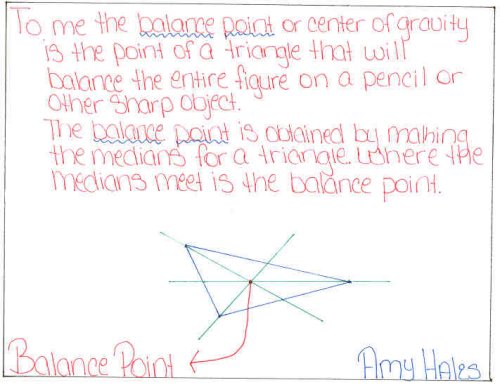 To me the balance point or center of gravity
is the point of a triangle that will
balance the entire figure on a pencil or
other sharp object.
The balance point is obtained by making
the medians for a triangle. Where the
medians meet is the balance point.
Balance Point
Amy Hales